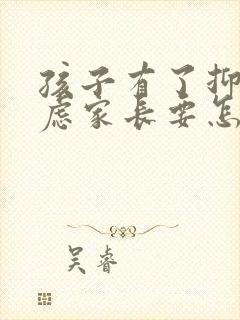 孩子有了抑
虑家长要怎
吴睿